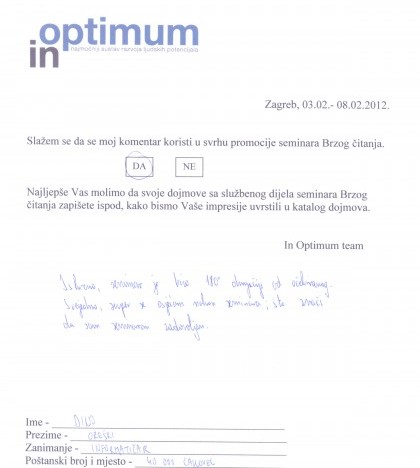 optimum
in
Zagreb, 03.02.- 08.02.2012.
Slažem se da se moj komentar koristi u svrhu promocije seminara Brzog čitanja.
DA NE
Najljepše Vas molimo da svoje dojmove sa službenog dijela seminara Brzog
čitanja zapišete ispod, kako bismo Vaše impresije uvrstili u katalog dojmova.
In Optimum team
Iskreno, seminar je bio 180° drugačiji od očekivanog.
super se osjećam nakon seminara, što znači
da sam seminarom zadovoljan.
Ime - DINO
Prezime -
Zanimanje - INFORMATIČAR
Poštanski broj i mjesto - 40 000 ČAKOVEC